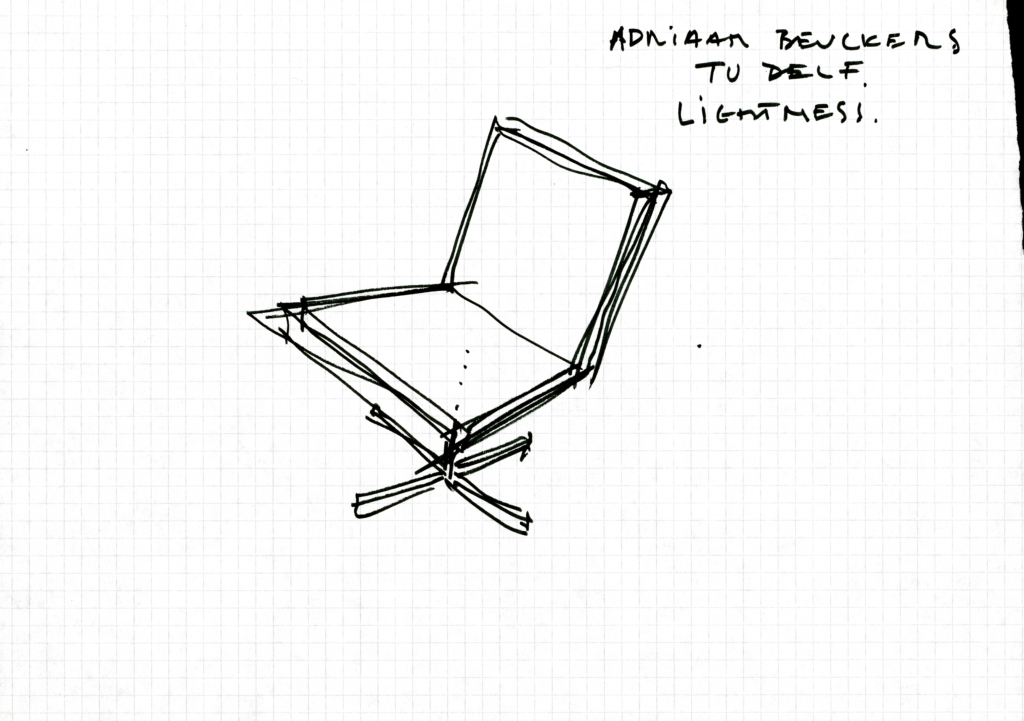 ADRIAAN BEUCKERS
TU DELF.
LIGHTNESS.